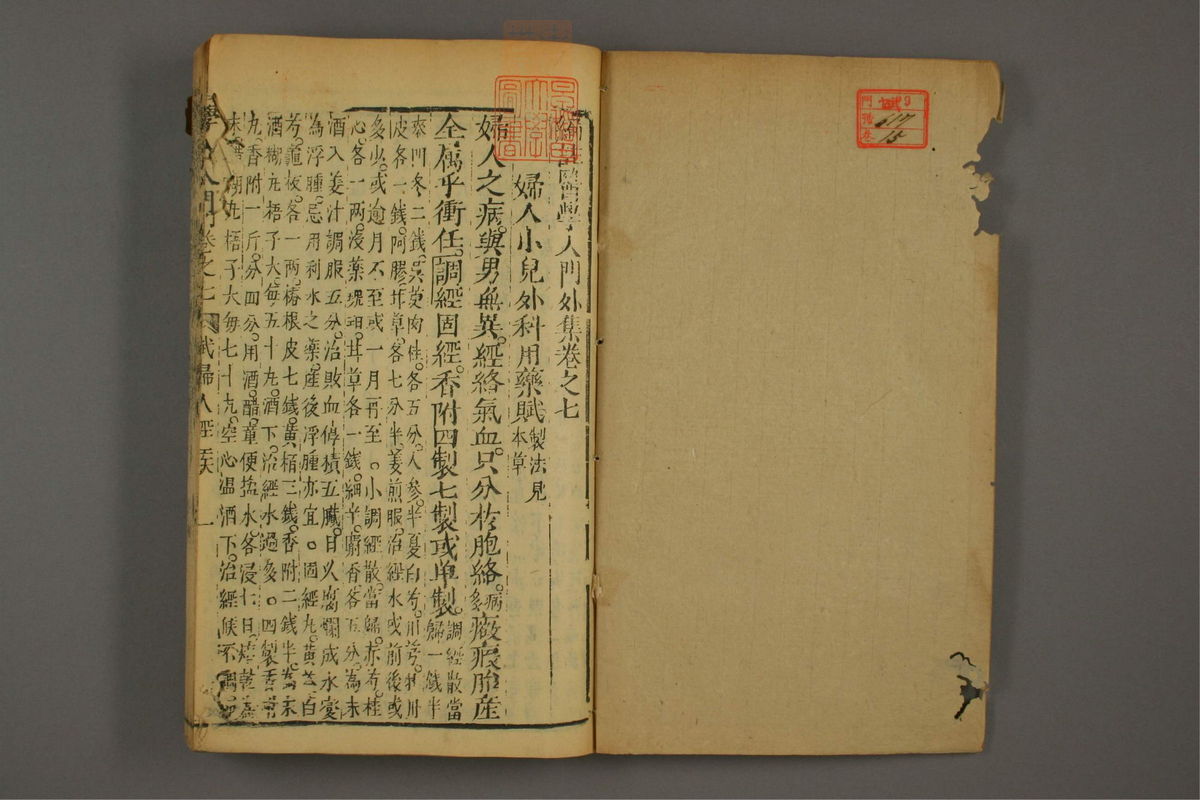 編註醫學入門外集卷之七
婦人小兒外科用藥賦 製法見本草
婦人之病與男無異。經絡氣血。只分於胞絡。病多癥瘕胎產
全屬乎衝任。調經固經。香附四製七製或單製。調經散當歸一錢半
麥門冬二錢。吳茱肉桂。各五分。人參。半夏白芍。川芎。牡丹
皮各一錢。阿膠甘草。各七分半。姜煎服。治經水或前後或
多少。或逾月不至或一月再至。○小調經散。當歸。赤芍。桂
心。各一兩。沒藥琥珀。甘草各一錢。細辛。麝香各五分。為末
酒入姜汁調服五分。治敗血停積五臟。日久腐爛成水變
為浮腫。忌用利水之藥。產後浮腫亦宜。○固經丸。黃芩白
芍。龜板。各一兩。椿根皮七錢。黃栢三錢。香附二錢半。為末
酒糊丸梧子大每五十丸。酒下。治經水過多。○四製香附
丸。香附一斤。分四分。用酒。醋。童便塩水。各浸七日。焙乾為
末。醋糊丸梧子大每七十丸。空心温酒下。治經候不調
學入門卷之七 賦婦人經 一
門 9
號 617
卷 15